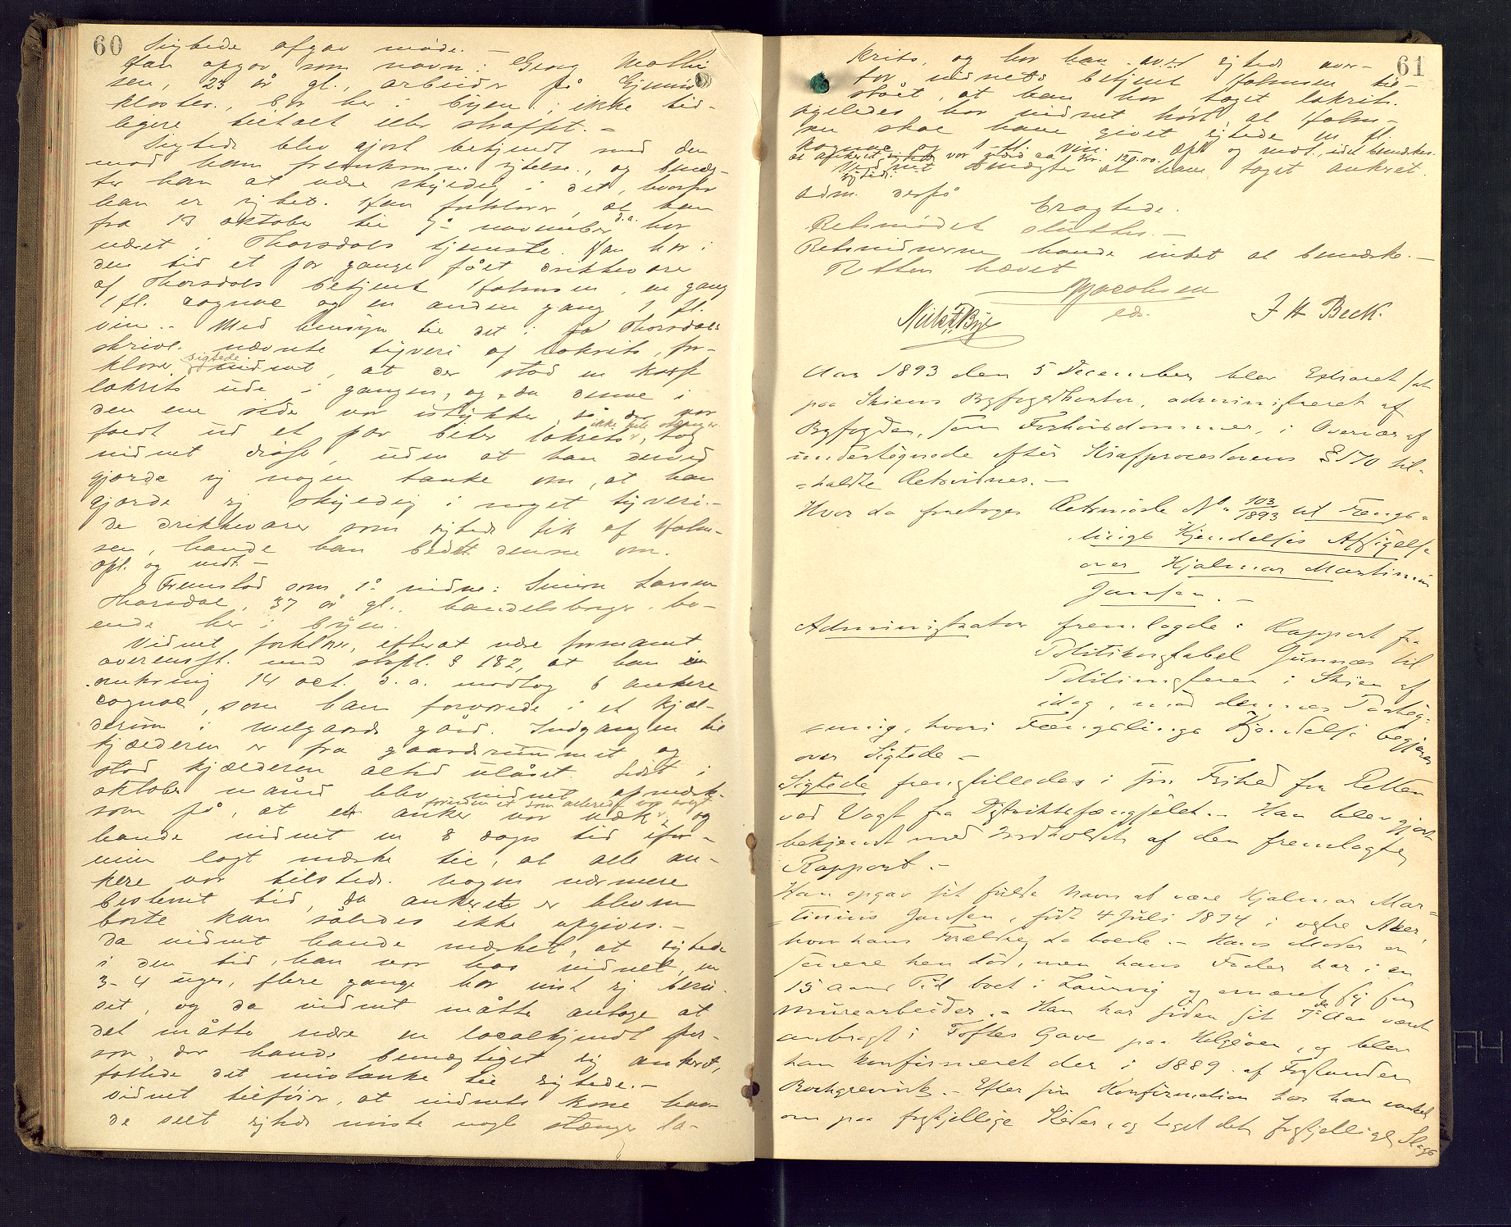 60
Sigtede afgav møde. —
Han opgav som navn: Georg Mathi
sen, 23 år gl., arbeider på Gjemsø
kloster, bor her i byen; ikke tid-
ligere tiltalt eller straffet. —
Sigtede blev gjort bekjendt med den
mod ham fremkomne sigtelse, og benæg-
ter han at være skyldig i det, hvorfor
han er sigtet. Han forklarer, at han
fra 13 oktober til 9 november d.a. har
været i Thorsdals tjeneste. Han har i
den tid et par gange fået drikkevare
af Thorsdals betjent Holmsen, en gang
1 fl. cognac og en anden gang 1 fl.
vin. — Med hensyn til det i fra Thorsdals
skriv. nævnte tyveri af lakrits, for-
klarer sigtede vidnet, at der stod en kasse
lakrits ude i gangen, og da denne i
den ene side var istykker så der var
faldt ud et par biter lakrits, ikke hele stænger tog
vidnet disse, uden at han derved
gjorde sig nogen tanke om, at han
gjorde sig skyldig i noget tyveri. —
De drikkevarer som sigtede fik af Holm-
sen, havde han bedt denne om.
Opl. og vedt. —
Fremstod som 1. vidne: Simon Larsen
Thorsdal, 37 år gl., handelsborger, bo-
ende her i byen.
Vidnet forklarer, efter at være formanet
overensst. med strpl. § 182, at han
omkring 14 oct. d.a. modtog 6 ankere
cognac, som han forvarede i et kjæl-
derrum i Melgaards gård. Indgangen til
kjælderen er fra gaardsrummet og
stod kjælderen altid ulåset. Sidst i
oktober måned blev vidnet opmærk-
som på, at et anker var væk, foruden et som allerede var solgt og
havde vidnet en 8 dages tid ifor-
veien lagt mærke til, at alle an-
kere var tilstede. Nogen nærmere
bestemt tid, da ankeret er bleven
borte kan således ikke opgives. —
Da vidnet havde mærket, at sigtede
i den tid, han var hos vidnet, en
3-4 uger, flere gange har vist sig beru-
set, og da vidnet måtte antage at
det måtte være en localkjendt per-
son, der havde bemægtiget sig ankeret,
faldt det mistanke til sigtede. —
Vidnet tilføier, at vidnets kone har-
de seet sigtede miste nogle stænger la-
61
krits, og har han ved sigtede over-
for vidnets betjent Holmsen til-
stået, at han har taget lakrits.
Ligeledes har vidnet hørt, at Holm-
sen skal have givet sigtede en fl.
kognac og 1 fl. vin. Opl. og vedt. idet bemærkes
at ankeret cognac var værd ca. kr. 120.00.
Sigtede benægter at have taget ankeret.
Adm. derpå
eragtede.
Retsmødet sluttes. —
Retsvidnerne havde intet at bemærke. —
Retten hævet
Jacobsen
cst.
Niels Bye
J H Beck.
Aar 1893 den 5 December blev Extraret sat
paa Skiens Byfogedkontor, administreret af
Byfogden, som Forhørsdommer, i Overvær af
undertegnede efter Strafproceslovens § 570 til-
=kaldte Retsvidner. —
Hvor da foretoges Retsmøde No 103/1893 til Fængs=
lings Kjendelses Afsigelse
over Hjalmar Martinius
Jansen. —
Administrator fremlagde: Rapport fra
Politikonstabel Gunnæs til
Politimesteren i Skien af
idag, med dennes Paateg-
ning, hvori Fængslings Kjendelse begjæres
over Sigtede —
Sigtede fremstilledes i fri Frihed for Retten
ved Vagt fra Distriktsfængslet. — Han blev gjort
bekjendt med Indholdet af den fremlagte
Rapport. —
Han opgav sit fulde Navn at være Hjalmar Mar=
=tinius Jansen, født 4 Juli 1874 i vestre Aker,
hvor hans Forældre da boede. — Hans Moder er
senere hen død, men hans Fader har i en
15 Aars Tid boet i Laurvig og ernæret sig som
Murarbeider. — Han har siden sit 7de Aar været
anbragt i Toftes Gave paa Helgøen, og blev
han konfirmeret der i 1889 af Forstander
Borchgrevink. — Efter sin Konfirmation har han vanket
om paa forskjellige Steder, og taget det forskjelligste Slags